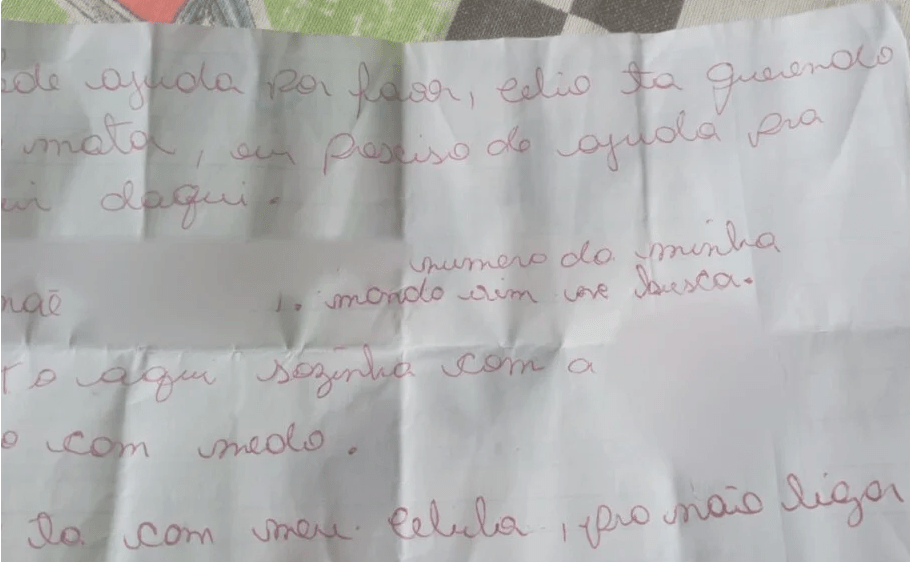 ede ajuda por favor, celio ta querendo
mata, eu presciso de ajuda pra
ir daqui.
numero da minha
mãe 1. manda vim me busca.
to aqui sozinha com a
o com medo.
ta com meu celula, pro não ligar